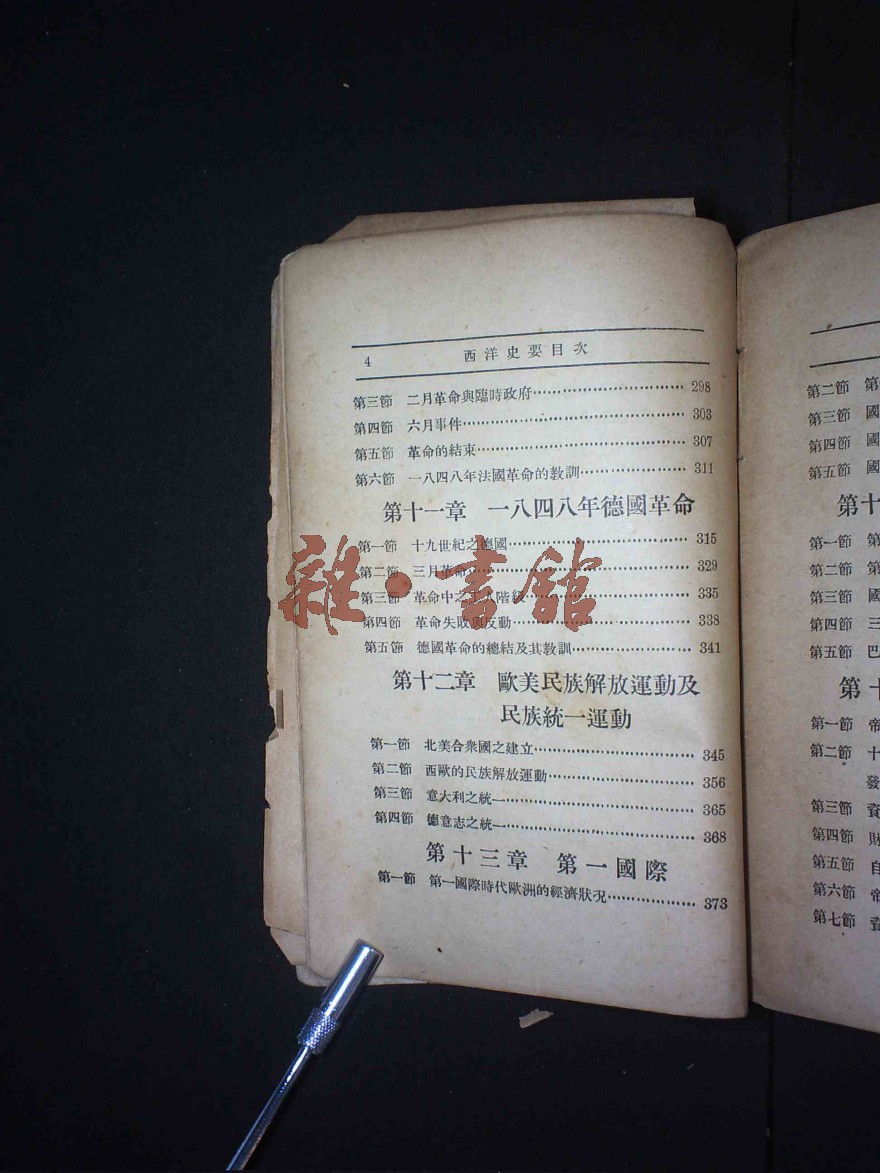 4 西洋史要目次
第三節 二月革命與臨時政府 298
第四節 六月事件 303
第五節 革命的結束 307
第六節 一八四八年法國革命的教訓 311
第十一章 一八四八年德國革命
第一節 十九世紀之德國 315
第二節 三月革命 329
第三節 革命中之工人階級 335
第四節 革命失敗與反動 338
第五節 德國革命的總結及其教訓 341
第十二章 歐美民族解放運動及
民族統一運動
第一節 北美合衆國之建立 345
第二節 西歐的民族解放運動 356
第三節 意大利之統一 365
第四節 德意志之統一 368
第十三章 第一國際
第一節 第一國際時代歐洲的經濟狀況 373
雜·書館
第二節 第
第三節 國
第四節 國
第五節 國
第十
第一節 第
第二節 第
第三節 國
第四節 三
第五節 巴
第十
第一節 帝
第二節 十
發
第三節 資
第四節 財
第五節 自
第六節 帝
第七節 資